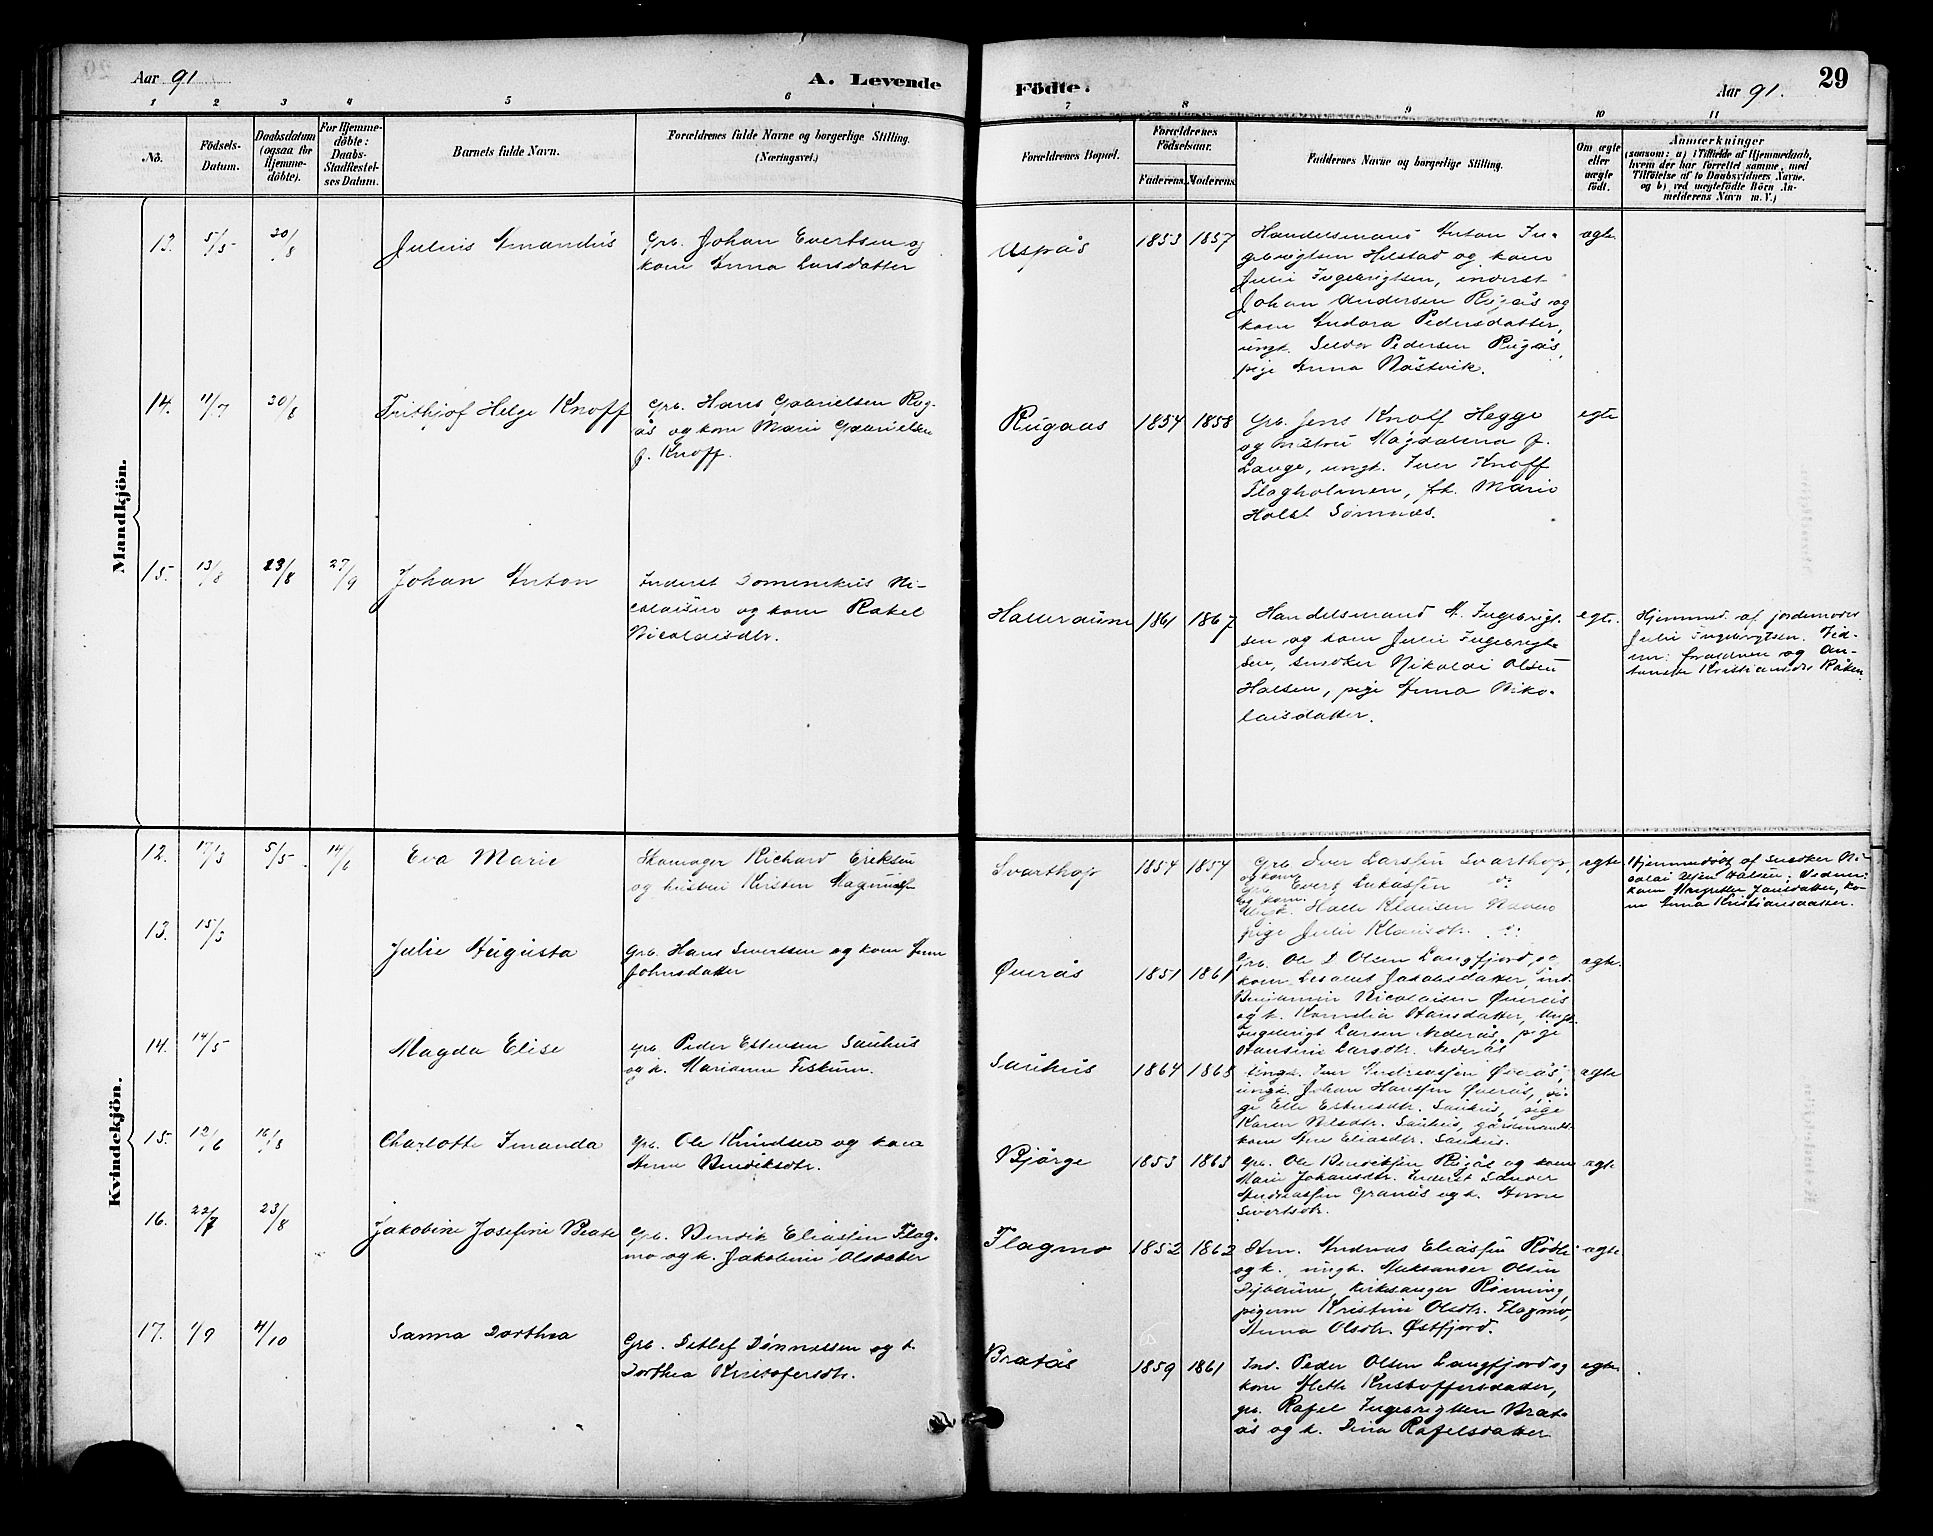 Aar 91
A. Levende
Födte.
Aar 91.
29
1 2 3 4 5 6 7 8 9 10 11
No.
Födsels-
Datum.
Daabsdatum
(ogsaa for
Hjemme-
döbte).
For Hjemme-
döbte:
Daabs-
Stadfæstel-
ses Datum.
Barnets fulde Navn.
Forældrenes fulde Navne og borgerlige Stilling.
(Næringsvei.)
Forældrenes Bopæl.
Forældrenes
Födselsaar.
Faderens.
Moderens.
Faddernes Navne og borgerlige Stilling.
Om ægte
eller
uægte
födt.
Anmærkninger
(saasom: a) i Tilfælde af Hjemmedaab,
hvem der har forrettet samme, med
Tilföielse af to Daabsvidners Navne.
og b) ved uægtefödte Börn An-
melderens Navn m. V.)
Mandkjön.
13. 5/5 30/8 Julius Amandus
Grb. Johan Evertsen og
kone Anna Larsdatter
Aspås 1853 1857
Handelsmand Anton In-
gebrigtsen Helstad og kone
Julie Ingebrigtsen, inderst
Johan Andersen Rugås og
kone Andora Pedersdatter,
ungk. Selder Pedersen Rugås,
pige Anna Nåstvik.
ægte
14. 11/7 30/8 Frithjof Helge Knoff
Grb. Hans Gabrielsen Rug-
ås og kone Marie Gabrielsen
f. Knoff.
Rugaas 1854 1858
Grb. Jens Knoff Hegge
og hustru Magdalena f.
Lange, ungk. Iver Knoff
Flagholmen, frk. Marie
Holst Sömnæs.
egte
15. 13/8 23/8 27/9 Johan Anton
Inderst Dominikus Ni-
colaisen og kone Rakel
Nicolaisdtr.
Halleraune 1861 1867
Handelsmand A. Ingebrigt-
sen og kone Julie Ingebrigt-
sen, snedker Nikolai Olsen
Halsen, pige Anna Niko-
laisdatter.
egte.
Hjemmed. af jordemoder
Julie Ingebrigtsen. Vid-
ner: forældrene og An-
Kvindekjön.
12. 17/3 5/5 14/6 Eva Marie
Skomager Richard Eriksen
og hustru Kirsten
Svarthop 1854 1854
Grb. Iver Larssen Svarthop,
og kone
Grb. Evert Lukassen do
og kone.
Ungk. Halle Klausen
pige Julie Klausdtr. do
egte
Hjemmedøbt af Snedker Ni-
colai Olsen Halsen; Vidner:
kone Margrethe Jansdatter, ko-
ne Anna Kristiansdatter.
13. 15/3 Julie Augusta
Grb. Hans Sivertsen og kone Anne
Johnsdatter
Øverås 1851 1861
Grb. Ole D Olsen Langfjord, og
kone Lesabet Jakobsdatter, ind.
Benjamin Nicolaisen Øverås
og k. Kornelia Hansdatter, ungk.
Ingebrigt Larsen Nederås, pige
Hansine Larsdtr. Nederås
ægte.
14. 14/5 Magda Elise
grb. Peder Estensen Sauhus
og k. Marianne Fiskum.
Sauhus 1864 1868
ungk. Iver Andreassen Øverås,
ungk. Johan Hanssen Øverås, pi-
ge Elle Estensdtr. Sauhus, pige
Karen Nilsdtr. Sauhus, gårdmands-
kone Ane Eliasdtr. Sauhus.
ægte
15. 12/6 16/8 Charlotte Amanda
grb. Ole Knudsen og kone
Anne Bendiksdtr.
Bjørge 1853 1863
grb. Ole Bendiksen Røjås og kone
Marie Johansdtr. Inderst Sander
Andreassen Granås og k. Anne
Sivertsdtr.
ægte
16. 22/7 23/8 Jakobine Josefine Beate
Grb. Bendik Eliassen Flag-
mo og k. Jakobine Olsdatter
Flagmo 1852 1862
Andreas Eliassen Rødli
og k., ungk. Aleksander Olsen
kirksanger Rønning,
pigerne Kristine Olsdtr. Flagmo,
Anna Olsdtr. Østfjord.
ægte
17. 1/9 4/10 Sanna Dorthea
Grb. Detlef Dønnessen og k.
Dorthea Kristofersdtr.
Bratås 1859 1861
Ind. Peder Olsen Langfjord og
kone Meth Kristoffersdatter,
grb. Rafel Ingebrigtsen Brat-
ås og k. Dina Rafelsdatter
egte